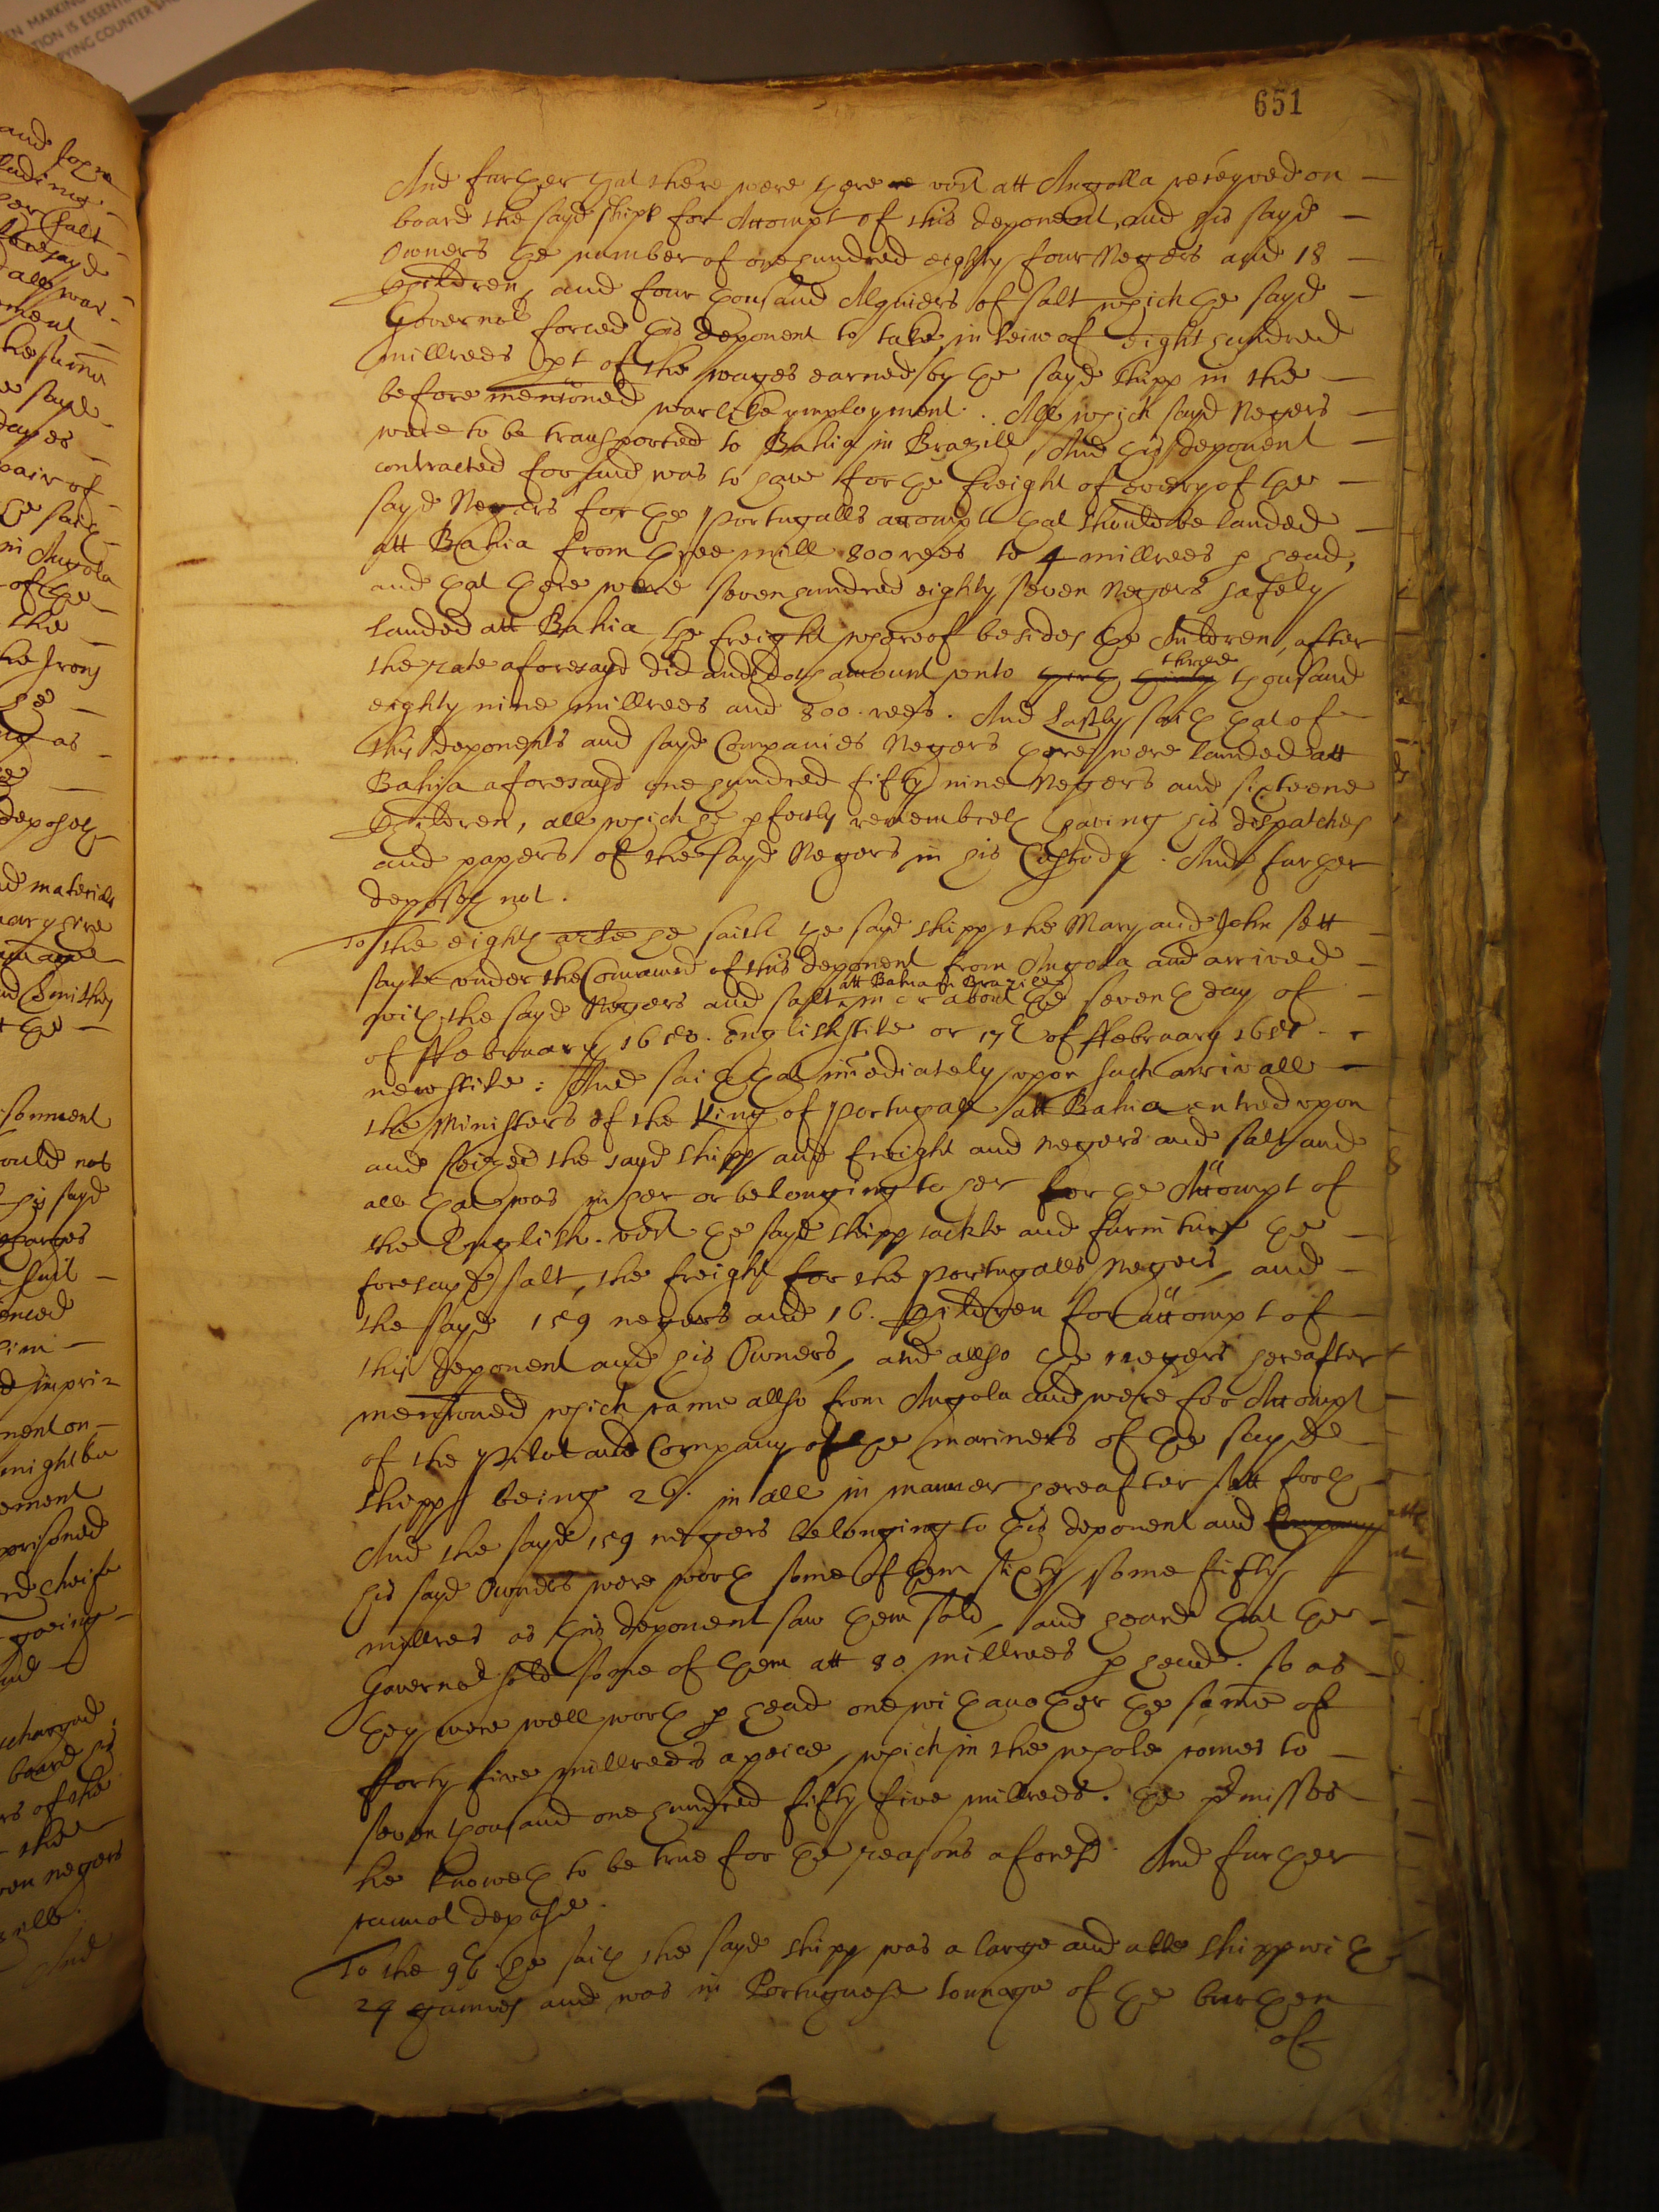 651
And further that there were there vizt att Angolla receyved on
board the sayd shipp for Accompt of this deponent and his sayd
Owners the number of one hundred eighty four Negers and 18
children, and four thousand Alquiers of salt which the sayd
Governor forced this deponent to take in leiw of eight hundred
millrees pt of the wages earned by the sayd shipp in the
before mentioned warlike ymployment. All which sayd Negers
were to be transported to Bahia in Brazill, And this deponent
contracted for and was to have for the freight of every of the
sayd Negers for the Portugalls accompt that should be landed
att Bahia from three mill 800 rees to 4 millrees p head,
and that there were seven hundred eighty seven Negers safely
landed att Bahia, the freight whereof besides the children, after
the rate aforesayd did and doth amount unto three thousand
eighty nine millrees and 800 rees. And Lastly saith that of
this deponents and sayd Companies Negers there were landed att
Bahia aforesayd one hundred fifty nine Negers and sixteene
children, all which he pfectly remembreth having his dispatches
and papers of the sayd Negers in his Custody. And further
deposeth not.
To the eighth arle he saith the sayd shipp the Mary and John sett
sayle under the Command of this deponent from Angola and arrived
att Bahia in Brazill
with the sayd Negers and salt in or about the seventh day of
of ffebruary 1650. English stile or 17th of ffebruary 1651
new stile: And saith that imediately upon such arrivall
the Ministers of the King of Portugall att Bahia entred upon
and seized the sayd shipp and freight and negers and salt and
all that was in her or belonging to her for the Accompt of
the English. vizt the sayd shipp tackle and furniture the
foresayd salt, the freight for the Portugalls Negers, and
the sayd 159 negers and 16. children for accompt of
this deponent and his Owners, and allso the negers hereafter
mentioned which came allso from Angola and were for Accompt
of the Pilot and Company of the mariners of the sayd
shipp being 26. in all in manner hereafter sett forth
And the sayd 159 negers belonging to this deponent and Company
his sayd Owners were worth some of them sixty some fifty
millres as this deponent saw them sold, and heard that the
Governor sold some of them att 80 millrees p head. so as
they were well worth p head one with another the some of
fforty five millrees apeice, which in the whole comes to
seven thousand one hundred fifty five millrees. the pmisses
he knoweth to be true for the reasons aforesd. And further
cannot depose.
To the 9th he saith the sayd shipp was a large and able shipp with
24 gunnes and was in Portuguese tonnage of the burthen
of